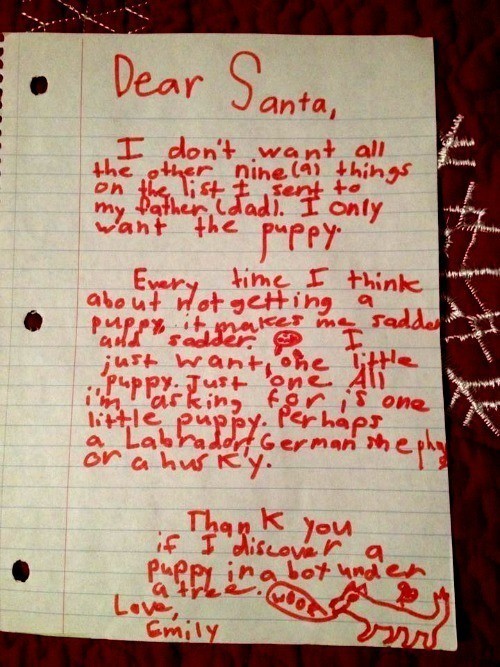 Dear Santa,
I don't want all
the other nine (9) things
on the list I sent to
my father (dad). I only
want the puppy.
Every time I think
about not getting a
puppy it makes me sadder
and sadder. I
just want, one little
puppy. Just one. All
i'm asking for is one
little puppy. Perhaps
a Labrador, German she
or a husky.
Thank you
if I discover a
puppy in a box under
a tree.
woof
Love,
Emily